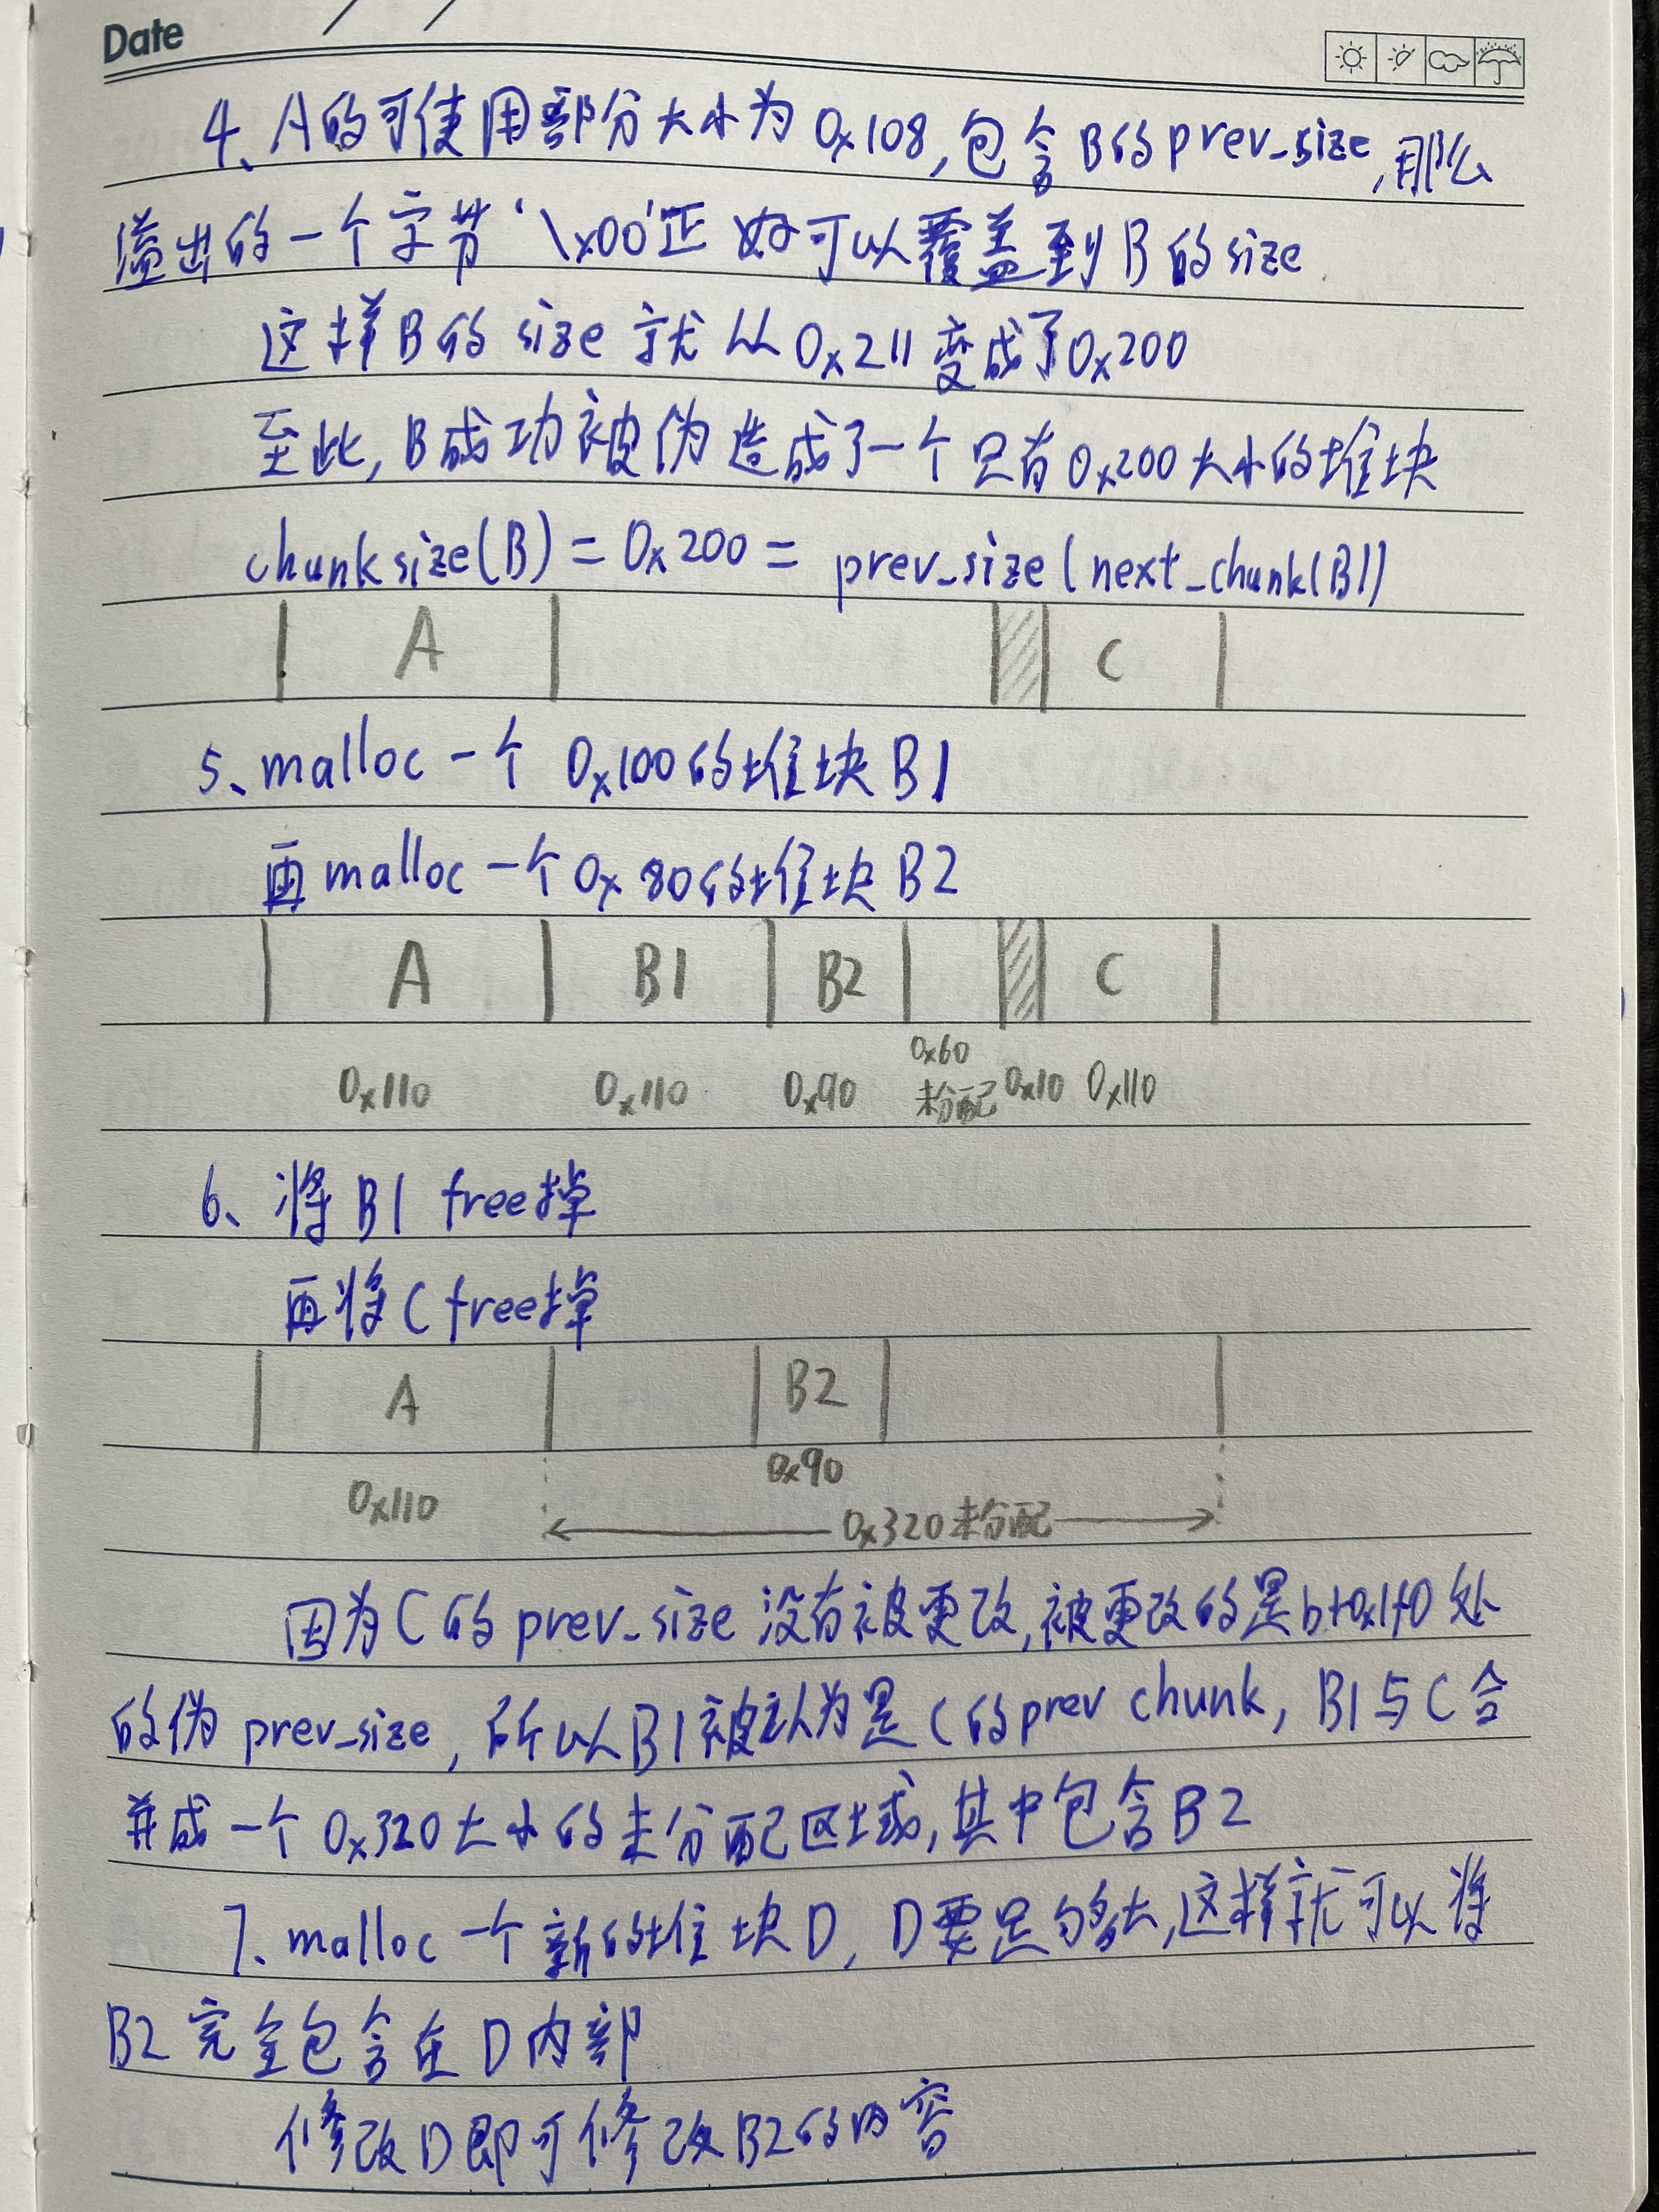 Date / /
4、A的可使用部分大小为0x108,包含B的prev_size,那么
溢出的一个字节'\x00'正好可以覆盖到B的size
这样B的size就从0x211变成了0x200
至此,B成功被伪造成了一个只有0x200大小的堆块
chunksize(B)=0x200=prev_size(next_chunk(B))
A C
5、malloc一个0x100的堆块B1
再malloc一个0x80的堆块B2
A B1 B2 C
0x60
0x110 0x110 0x90 未分配 0x10 0x110
6、将B1 free掉
再将C free掉
A B2
0x90
0x110 0x320未分配
因为C的prev_size没有被更改,被更改的是b+0x1f0处
的伪prev_size,所以B1被认为是C的prev chunk,B1与C合
并成一个0x320大小的未分配区域,其中包含B2
7、malloc一个新的堆块D,D要足够大,这样就可以将
B2完全包含在D内部
修改D即可修改B2的内容